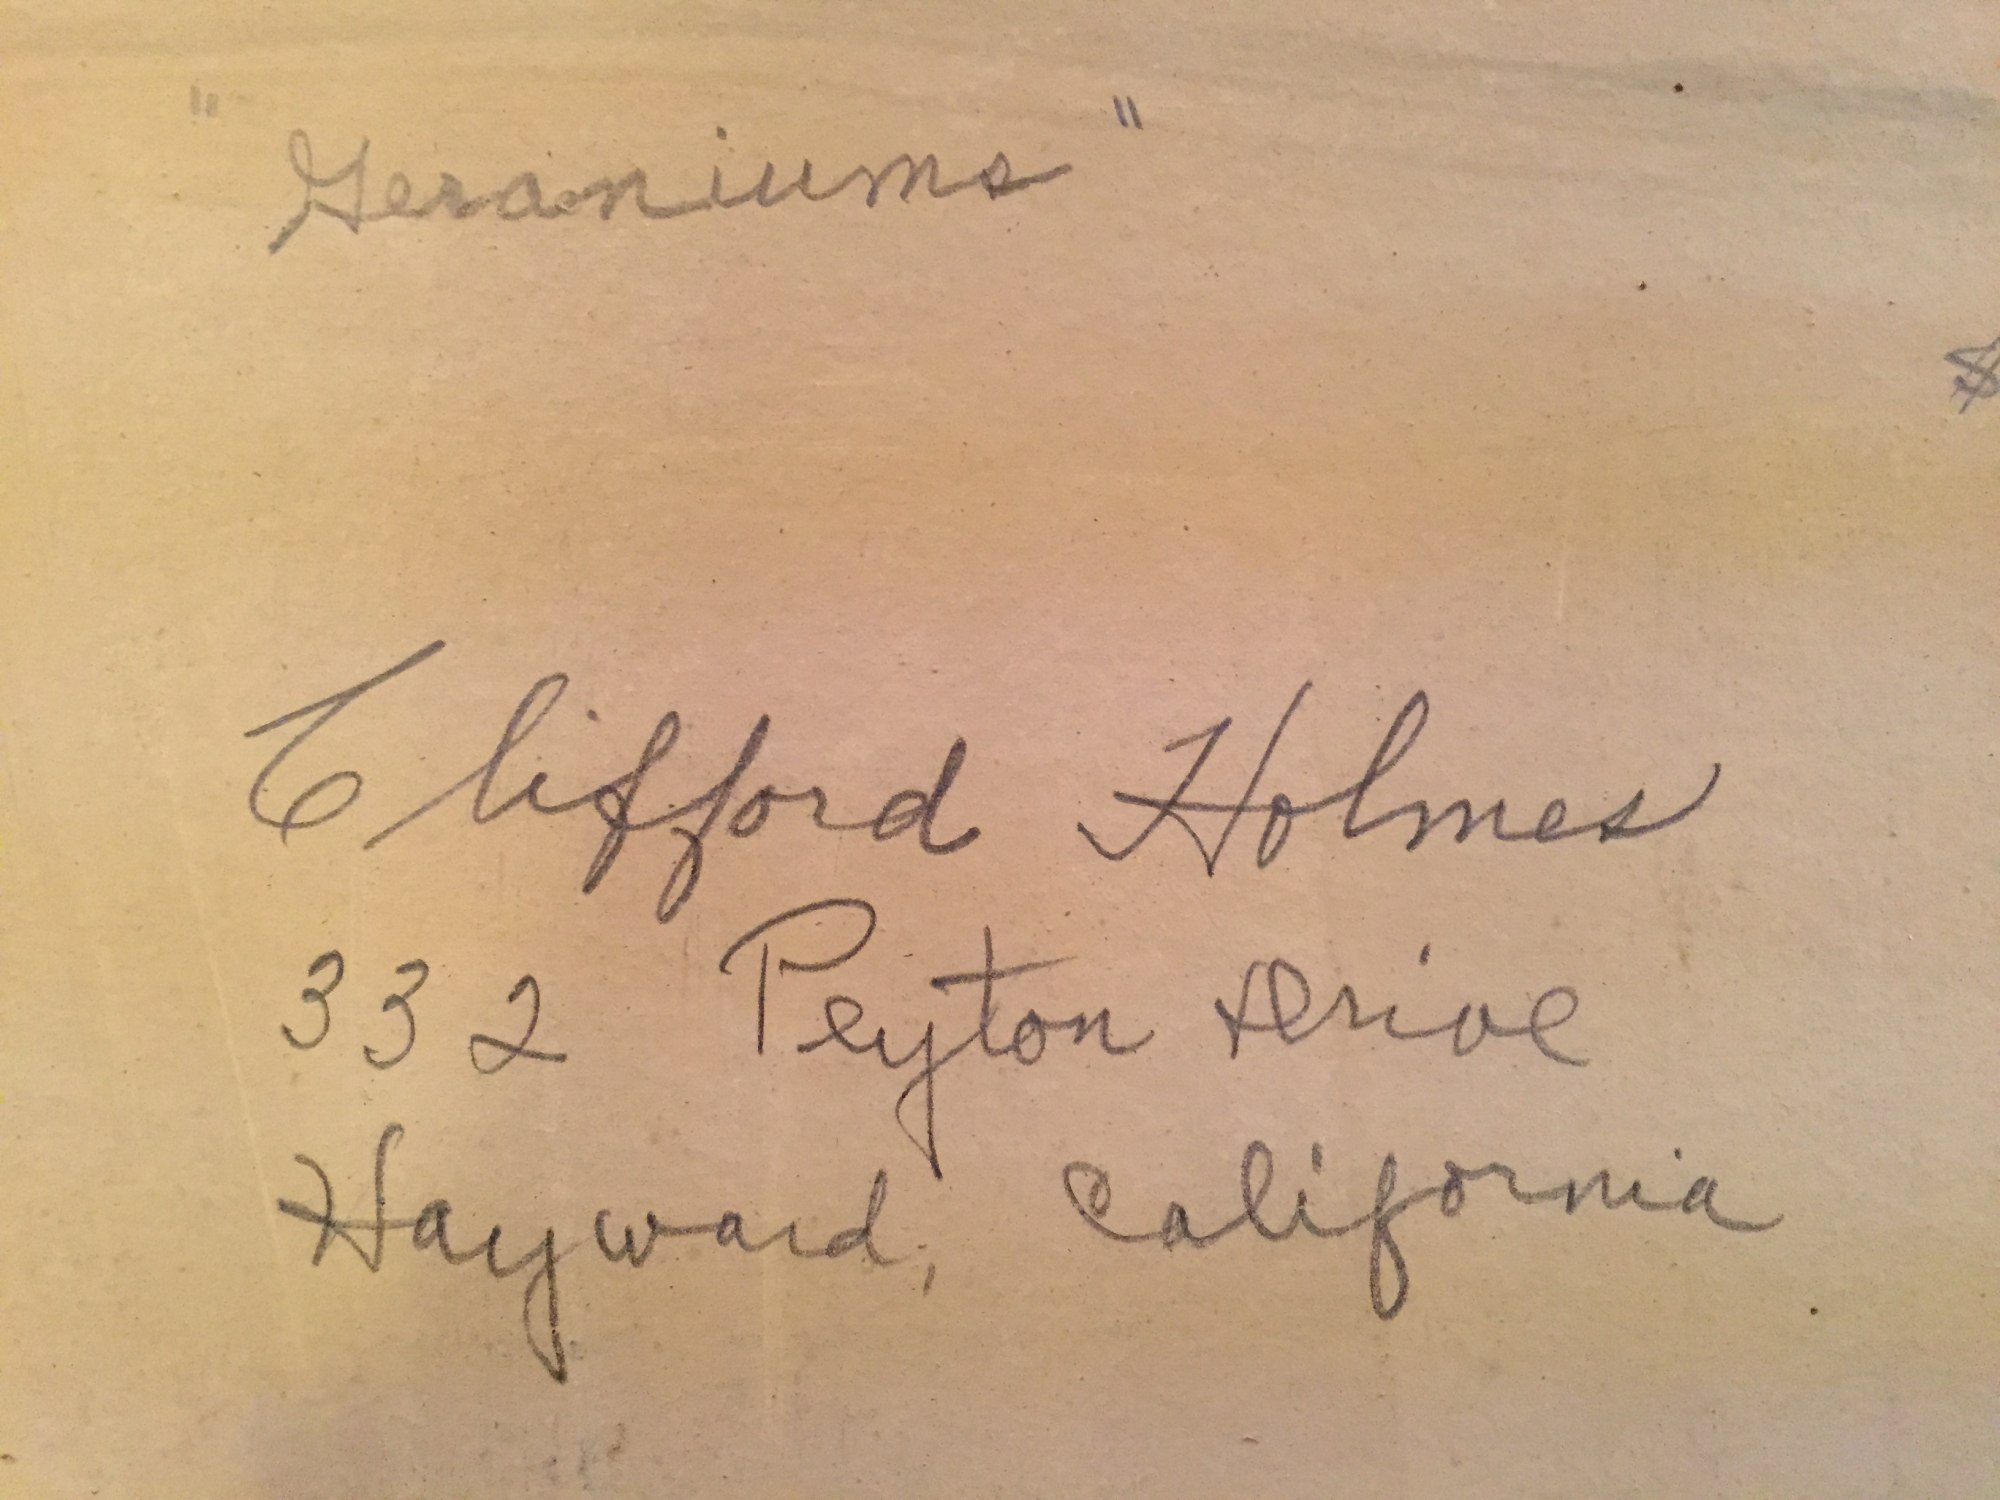 "Geraniums"
$
Clifford Holmes
332 Peyton Drive
Hayward, California